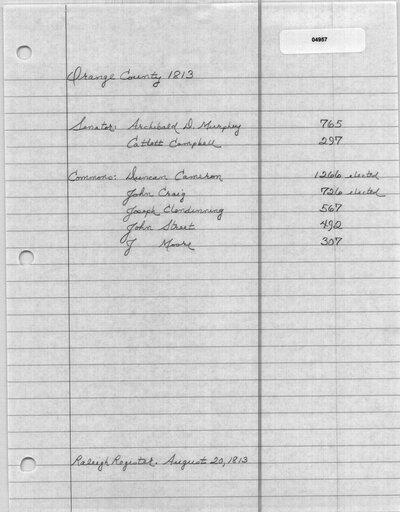 04957
Orange County 1813
Senator: Archibald D. Murphey 765
Catlett Campbell 297
Commons: Duncan Cameron 1266 elected
John Craig 726 elected
Joseph Clendinning 567
John Street 492
J Moore 307
Raleigh Register. August 20, 1813